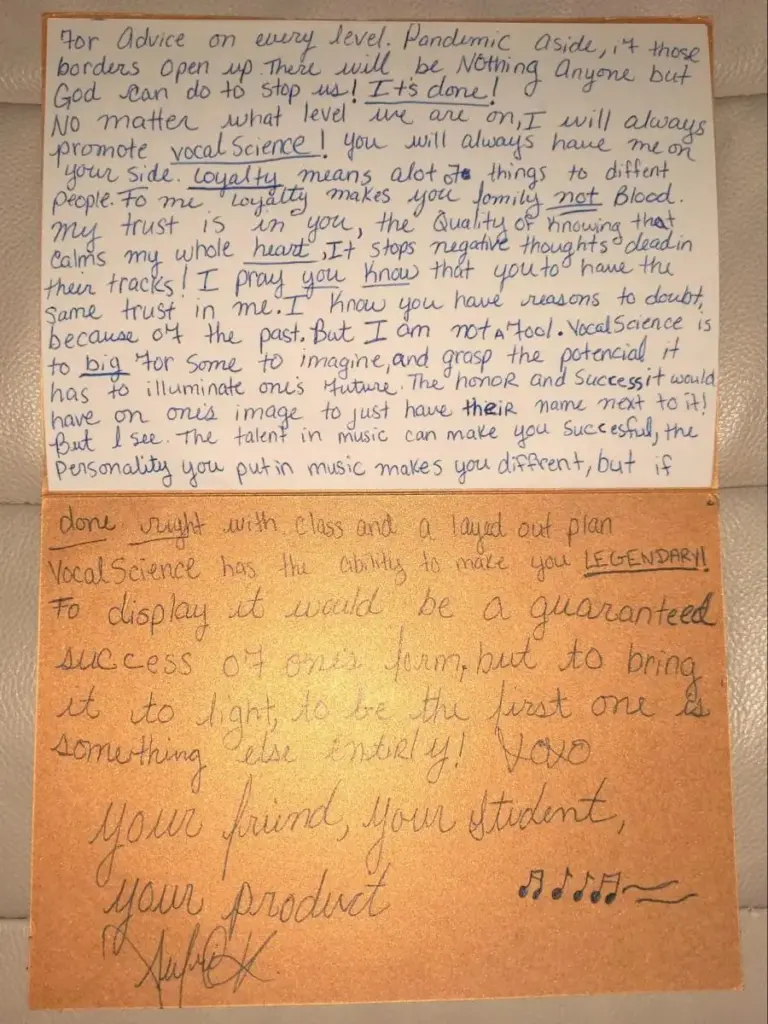 For Advice on every level. Pandemic aside, if those
borders open up There will be Nothing Anyone but
God can do to stop us! It's done!
No matter what level we are on, I will always
promote vocalScience! you will always have me on
your side. Loyalty means alot of things to diffent
people. To me loyalty makes you family not Blood.
my trust is in you, the Quality of knowing that
calms my whole heart, It stops negative thoughts dead in
their tracks! I pray you know that you to have the
same trust in me. I know you have reasons to doubt,
because of the past. But I am not a fool. VocalScience is
to big for some to imagine, and grasp the potencial it
has to illuminate one's future. The honor and Success it would
have on one's image to just have their name next to it!
But I see. The talent in music can make you Succesful, the
Personality you put in music makes you diffrent, but if
done right with class and a layed out plan
VocalScience has the ability to make you LEGENDARY!
To display it would be a guaranteed
success of one's form, but to bring
it to light, to be the first one is
something else entirly! Xoxo
your friend, your student,
your product